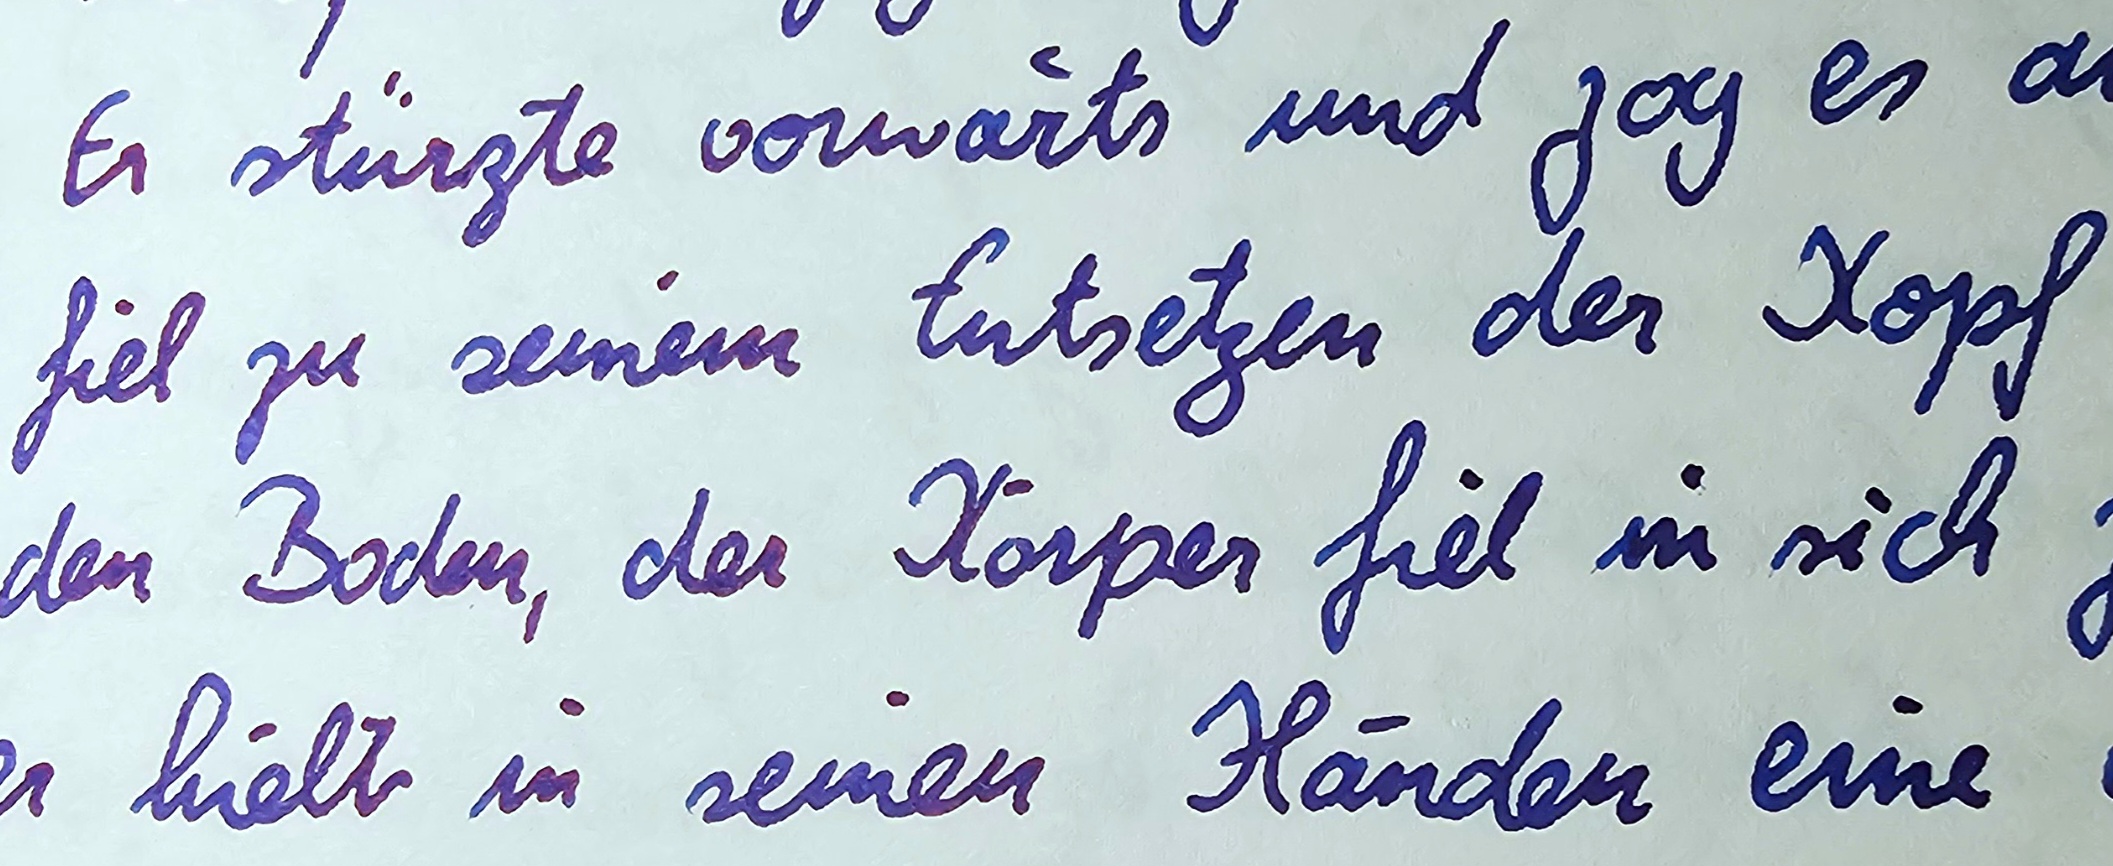 Er stürzte vorwärts und zog es
fiel zu seinem Entsetzen der Kopf
den Boden, der Körper fiel in sich
er hielt in seinen Händen eine